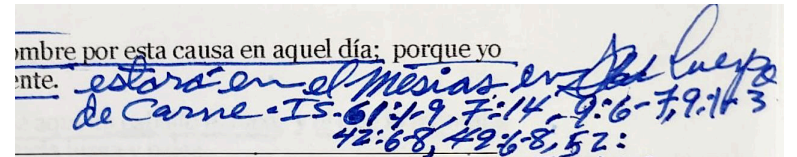 ombre por esta causa en aquel día; porque yo
ente. estará en el Mesías, en Cuerpo
de Carne - IS. 61:1-9, 7:14, 9:6-7, 9:1-3
42:6-8, 49:6-8, 52: